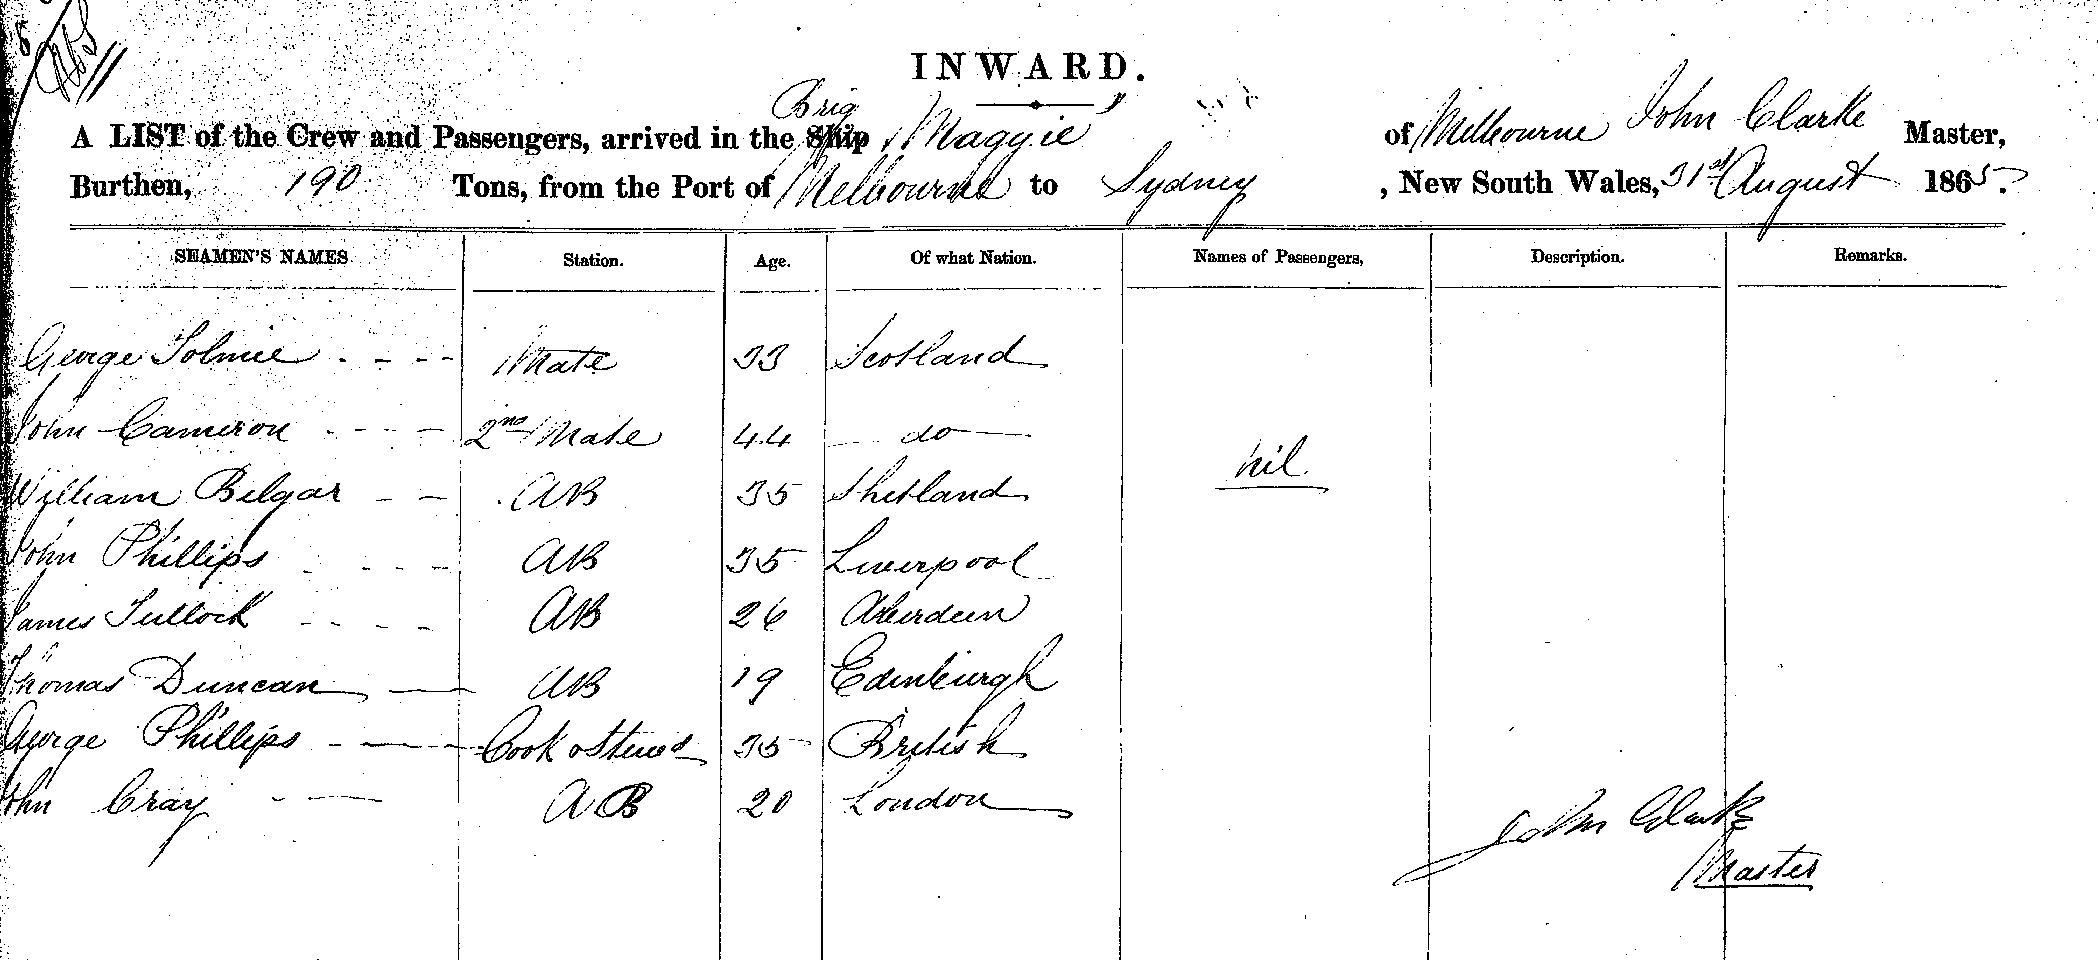 INWARD.
A LIST of the Crew and Passengers, arrived in the Ship Brig "Maggie" of Melbourne John Clarke Master,
Burthen, 190 Tons, from the Port of Melbourne to Sydney, New South Wales, 31st August 1865.
SEAMEN'S NAMES Station. Age. Of what Nation. Names of Passengers, Description. Remarks.
George Tolmie Mate 33 Scotland
John Cameron 2nd Mate 44 do
nil
William Belgar AB 35 Shetland
John Phillips AB 35 Liverpool
James Tullock AB 26 Aberdeen
Thomas Duncan AB 19 Edinburgh
George Phillips Cook & Stewd 35 British
John Cray AB 20 London
John Clarke
Master